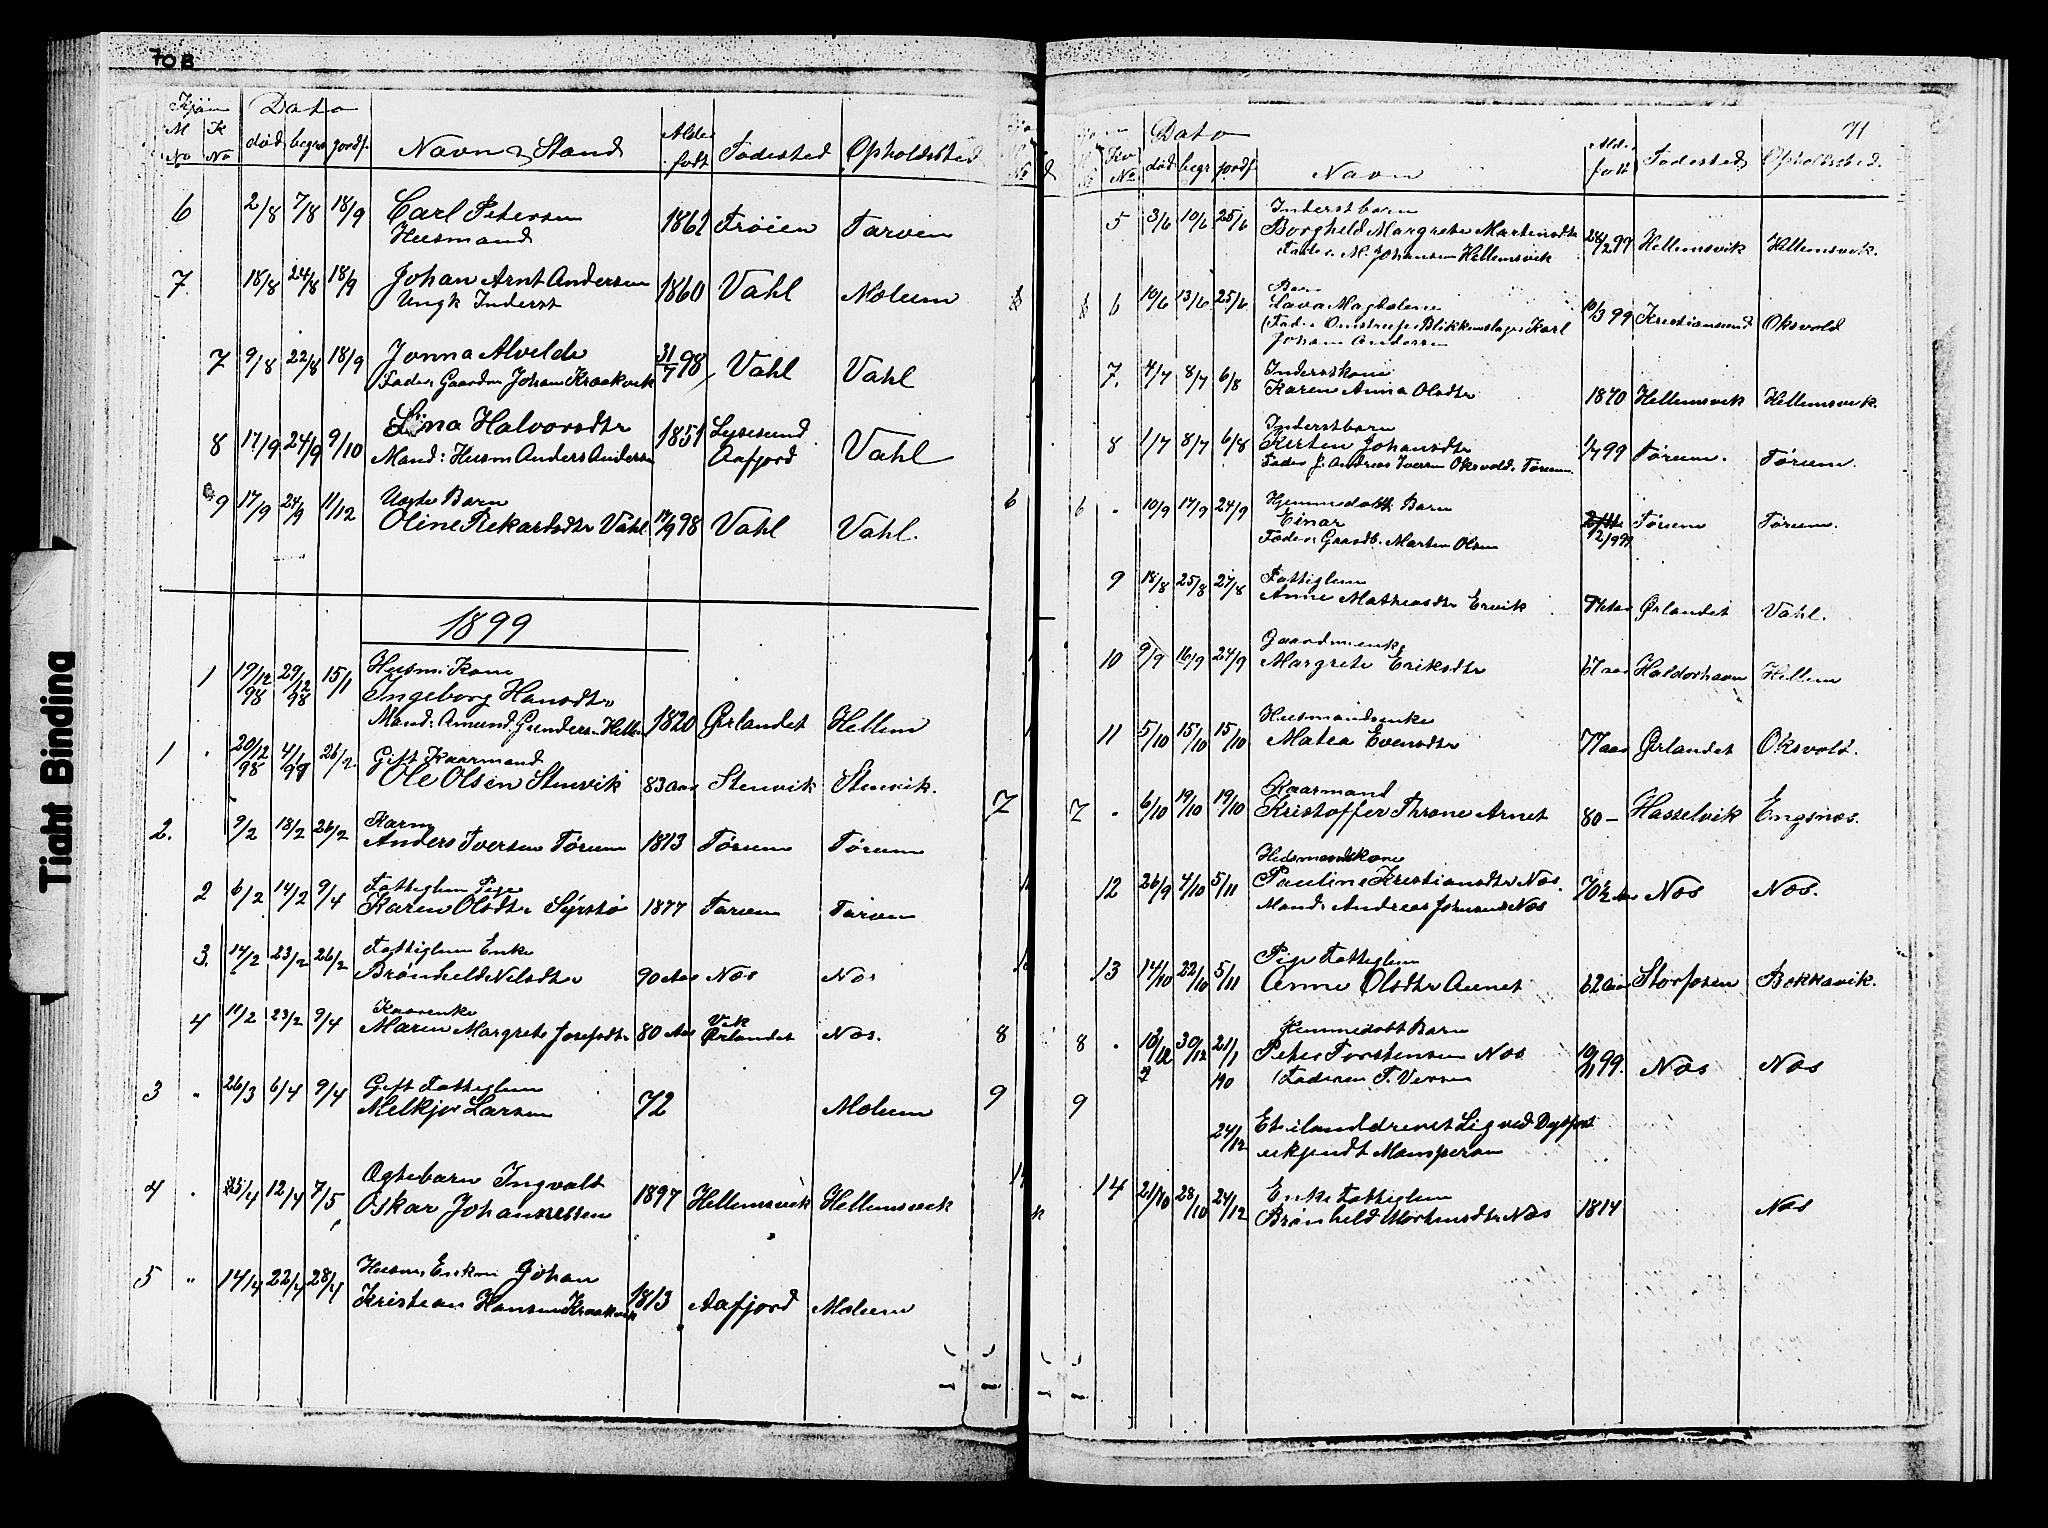 70B
Kjøn Dato
M K død begr jordf. Navn & Stand Alder Fødested Opholdssted
No No født
6 2/8 7/8 18/9 Carl Petersen 1861 Frøien Tarven
Husmand
7. 18/8 24/8 18/9 Johan Arnt Andersen 1860 Vahl Molum
Ungk Inderst
7 9/8 22/8 18/9 Jonna Alvilde 31/7 98 Vahl Vahl
Fader Gaardm Johan Kraakvik
8 17/9 24/9 9/10 Lina Halvorsdtr 1851 Lysesund Vahl
Mand: Husm Anders Andersen Aafjord
9 17/9 24/9 11/12 Uægte Barn
Oline Rikardsdtr Vahl 17/9 98 Vahl Vahl.
1899
1 19/12 98 29/12 98 15/1 Husm: Kone
Ingeborg Hansdtr
Mand: Amund Gunders. Hellem 1820 Ørlandet Hellem
1 " 20/12 98 4/1 99 26/2 Gift Kaarmand
Ole Olsen Stenvik 83 aar Stenvik Stenvik.
2. 9/2 18/2 26/2 Karm
Anders Iversen Tørum 1813 Tørum Tørum
2 6/2 14/2 9/4 Fattiglem Pige
Karen Olsdtr Syrstø 1877 Tarven Tarven
3. 14/2 23/2 26/2 Fattiglem Enke
Brønhild Nilsdtr 90 Aar Nes Nes
4 11/2 23/2 9/4 Kaarenke Vik
Maren Margrete Josefsdtr 80 Aar Ørlandet Nes.
3 " 26/3 6/4 9/4 Gift Fattiglem
Melkjor Larsen 72 Molum
4 " 5/4 12/4 7/5 Ægtebarn Ingvald
Oskar Johannessen 1897 Hellemsvik Hellemsvik
5 " 14/4 22/4 28/4 Husm Enkm Johan
Kristian Hansen Kraakvik 1813 Aafjord Molum
71
Dato
Kv No død begr jordf. Navn Alder født Fødested Opholdssted.
5 3/6 10/6 25/6 Inderstbarn
Borghild Margrete Martinsdtr 28/2 99 Hellemsvik Hellemsvik.
Fader M. Johansen Hellemsvik
6 10/6 13/6 25/6 Barn
Lava Magdalene 10/3 99 Kristiansund Oksvold
(Fader Omstreif. Blikkenslager Karl
Johan Andersen
7. 4/7 8/7 6/8 Inderstkone
Karen Anna Olsdtr 1870 Hellemsvik Hellemsvik.
8 1/7 8/7 6/8 Inderstbarn
Kirsten Johansdtr 1/7 99 Tørum. Tørum.
Fader J. Andreas Iversen Oksvold. Tørum
6 " 10/9 17/9 24/9 Hjemmedøbt Barn
Einar 2/9 99 Tørum Tørum.
Fader: Gaardb. Martin Olsen
9 18/8 25/8 27/8 Fattiglem
Anne Mathiasdtr Ervik Ørlandet Vahl.
10 9/9 16/9 24/9 Gaardmenke
Margrete Eriksdtr 67 aar Haldorhavn Hellem
11 5/10 15/10 15/10 Husmandsenke
Matea Evensdtr 77 aar Ørlandet Oksvold.
7 " 6/10 19/10 19/10 Kaarmand
Kristoffer Throne Arnet 80 — Hasselvik Engsnes.
12 26/9 4/10 5/11 Husmandskone
Pauline Kristiansdtr Nes. 70½ Aar Nes Nes.
Mand: Andreas Johansen Nes
13 14/10 22/10 5/11 Pige Fattiglem
Anne Olsdtr Aunet 62 aar Storfosen Bekkavik.
8 " 18/12 30/12 21/1 Hjemmedøbt Barn
Peter Torstensen Nes 99. Nes Nes
(Faderen T. Iversen
9
24/12 Et ilanddrevet Lig ved Dypfest
ukjendt Mansperson
14 21/10 28/10 24/12 Enke Fattiglem
Brønhild Mortensdtr Nes 1814 Nes
Tight Binding